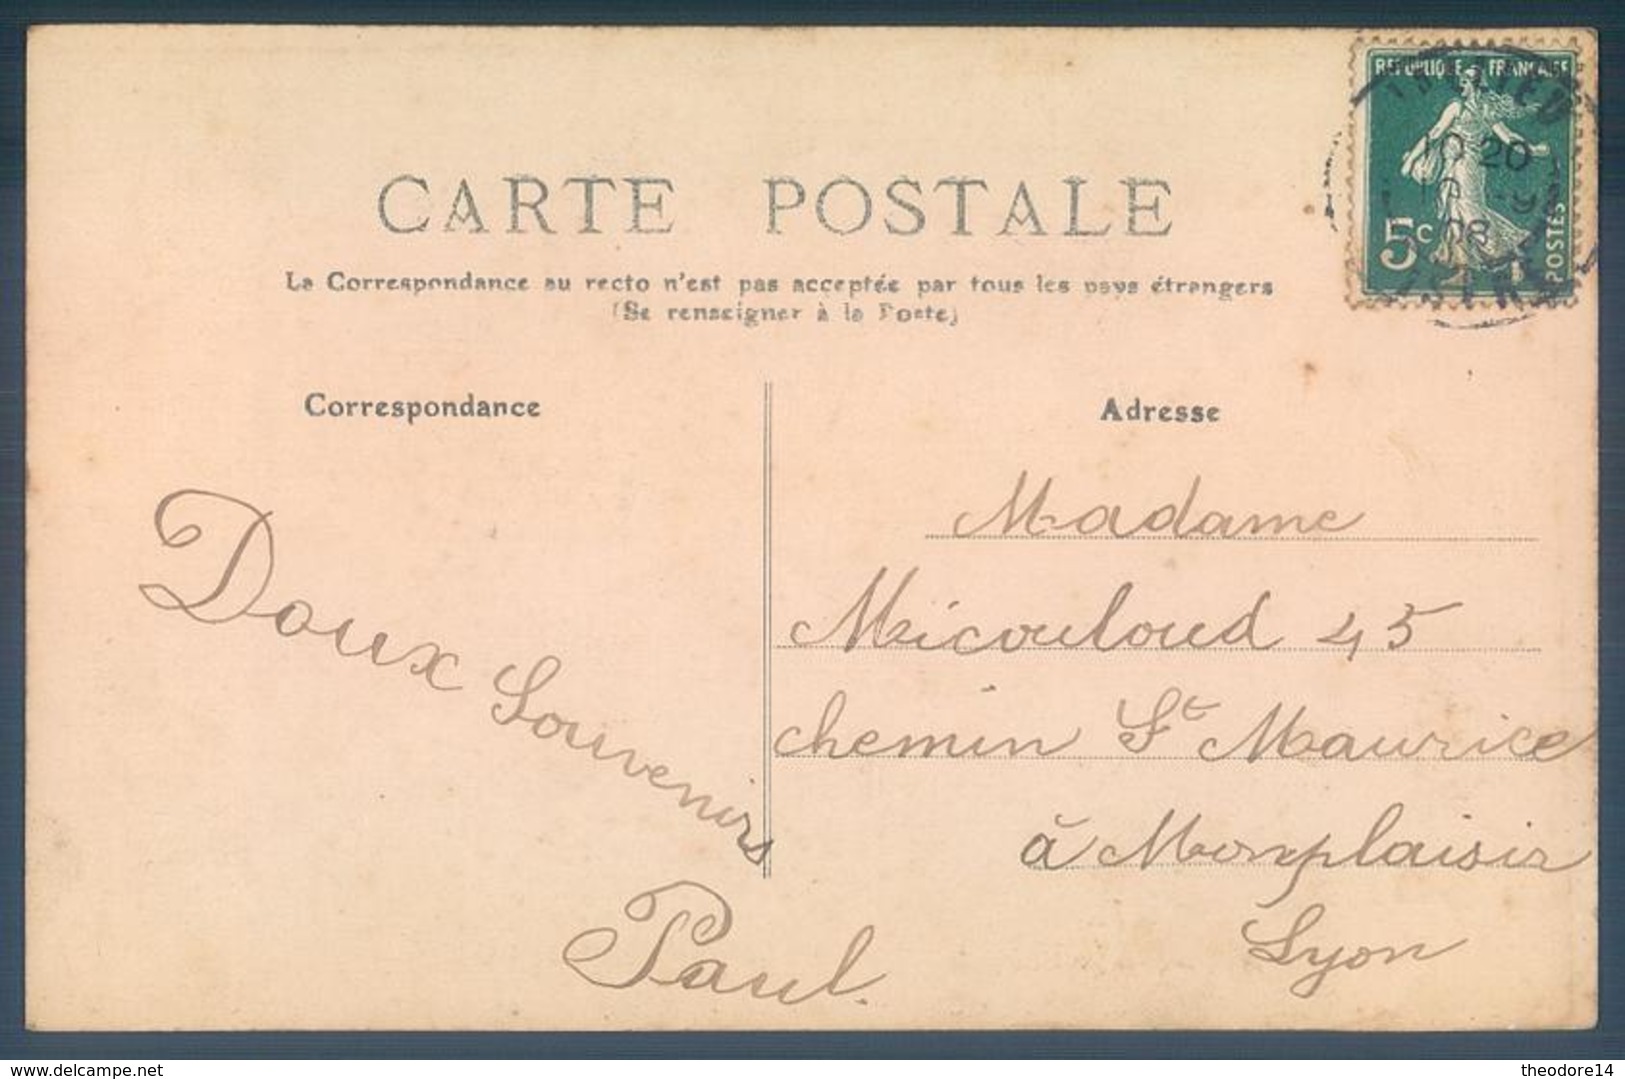 CARTE POSTALE
La Correspondance au recto n'est pas acceptée par tous les pays étrangers
(Se renseigner à la Poste)
REPUBLIQUE FRANÇAISE
10 20
10 -9
08
5c
POSTES
Correspondance
Adresse
Doux Souvenirs
Paul.
Madame
Micouloud 45
chemin St Maurice
à Monplaisir
Lyon
delcampe.net
theodore14